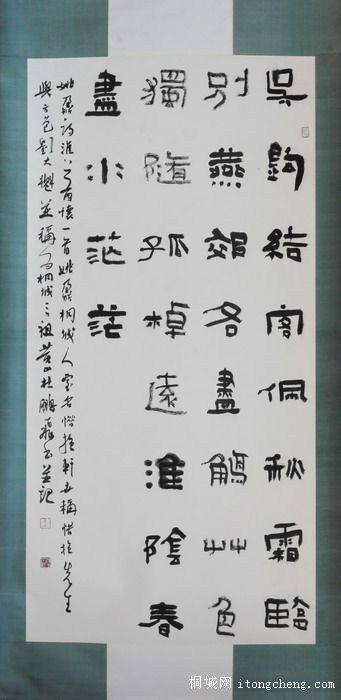 吳鉤結客佩秋霜臨
別燕郊各盡觴艸色
獨隨孤棹遠淮陰春
盡水茫茫
姚鼐詩淮上有懷一首姚鼐桐城人室名惜抱軒世稱惜抱先生
與方苞劉大櫆並稱為桐城三祖黃山杜鵬飛書並記
桐城网 itongcheng.com